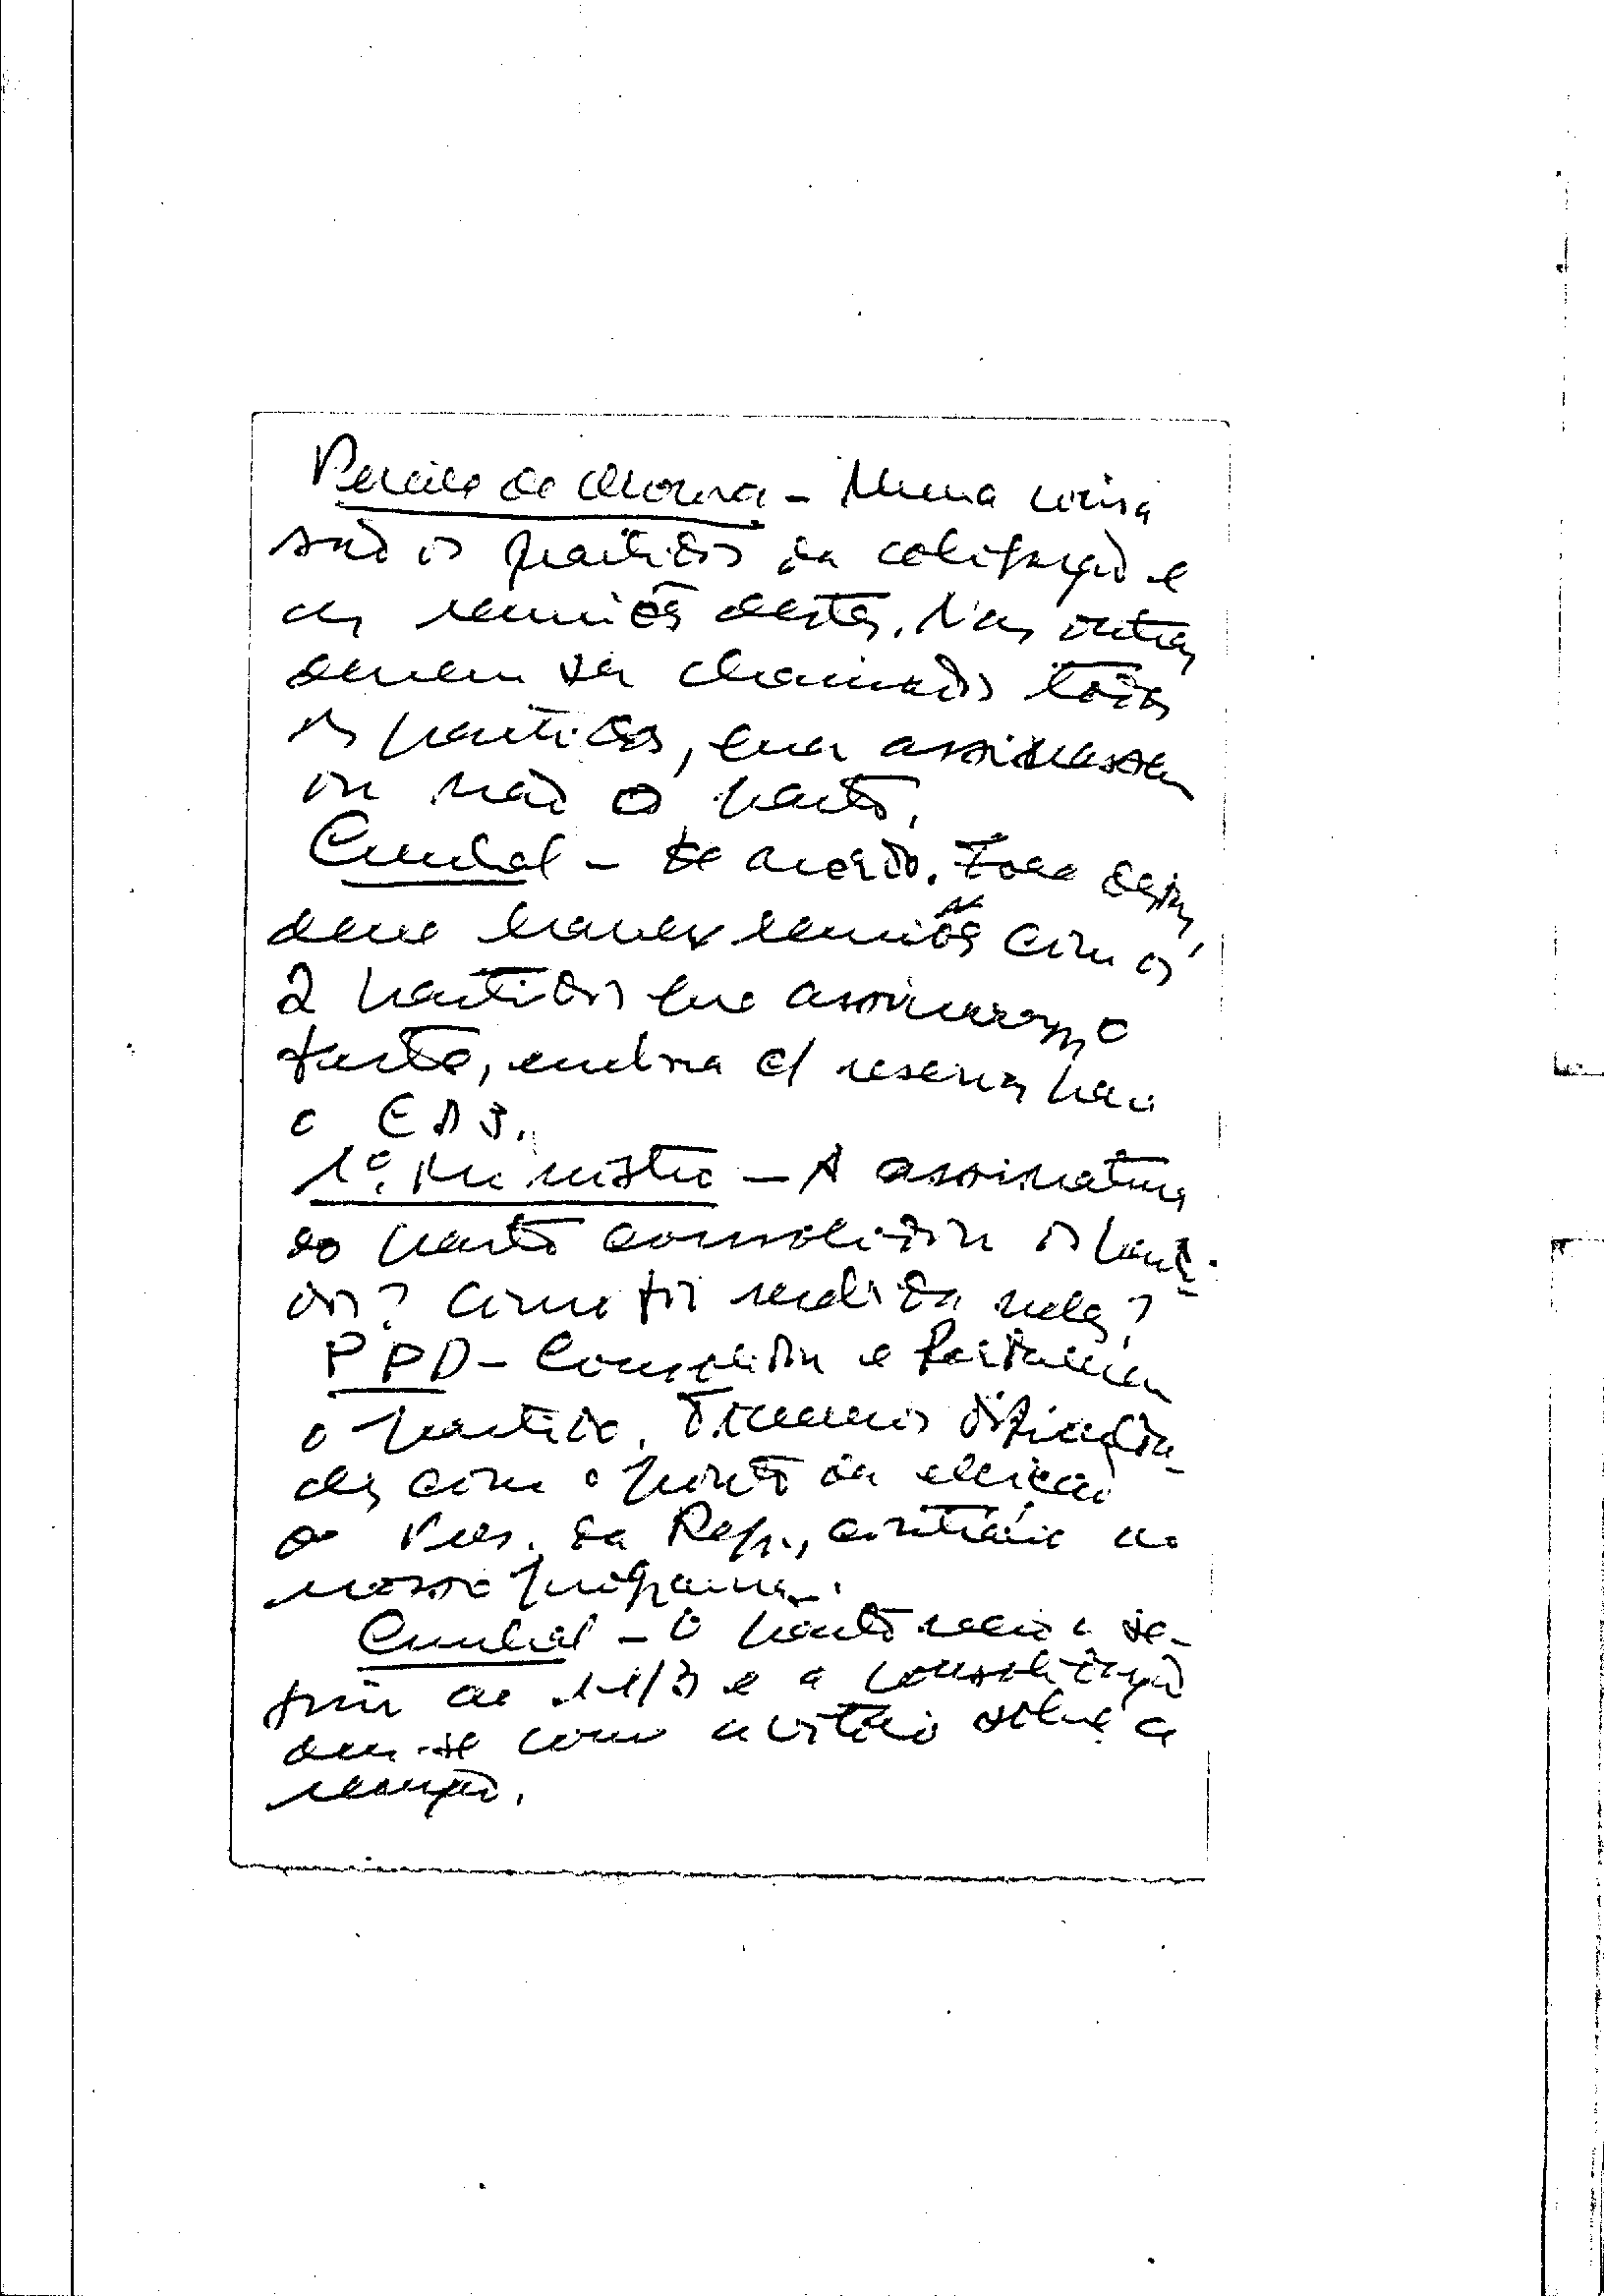 Pereira de Moura - Numa coisa
são os partidos da coligação e
as reuniões destes. Nas outras
devem ser chamados todos
os partidos, quer assinassem
ou não o pacto.
Cunhal - De acordo. Fora disso,
deve haver reuniões com os
2 partidos que assinaram o
pacto, embora c/ reservas para
o CDS.
1º. Ministro - A assinatura
do pacto consolidou os parti-
dos? Como foi recebida neles?
PPD - Consolidou e fortaleceu
o partido. Tivemos dificulda-
des com o ponto da eleição
do Pres. da Rep., contrário ao
nosso programa.
Cunhal - O pacto nasceu a se-
guir ao 11/3 e a consolidação
deu-se com a vitória sobre a
reacção.